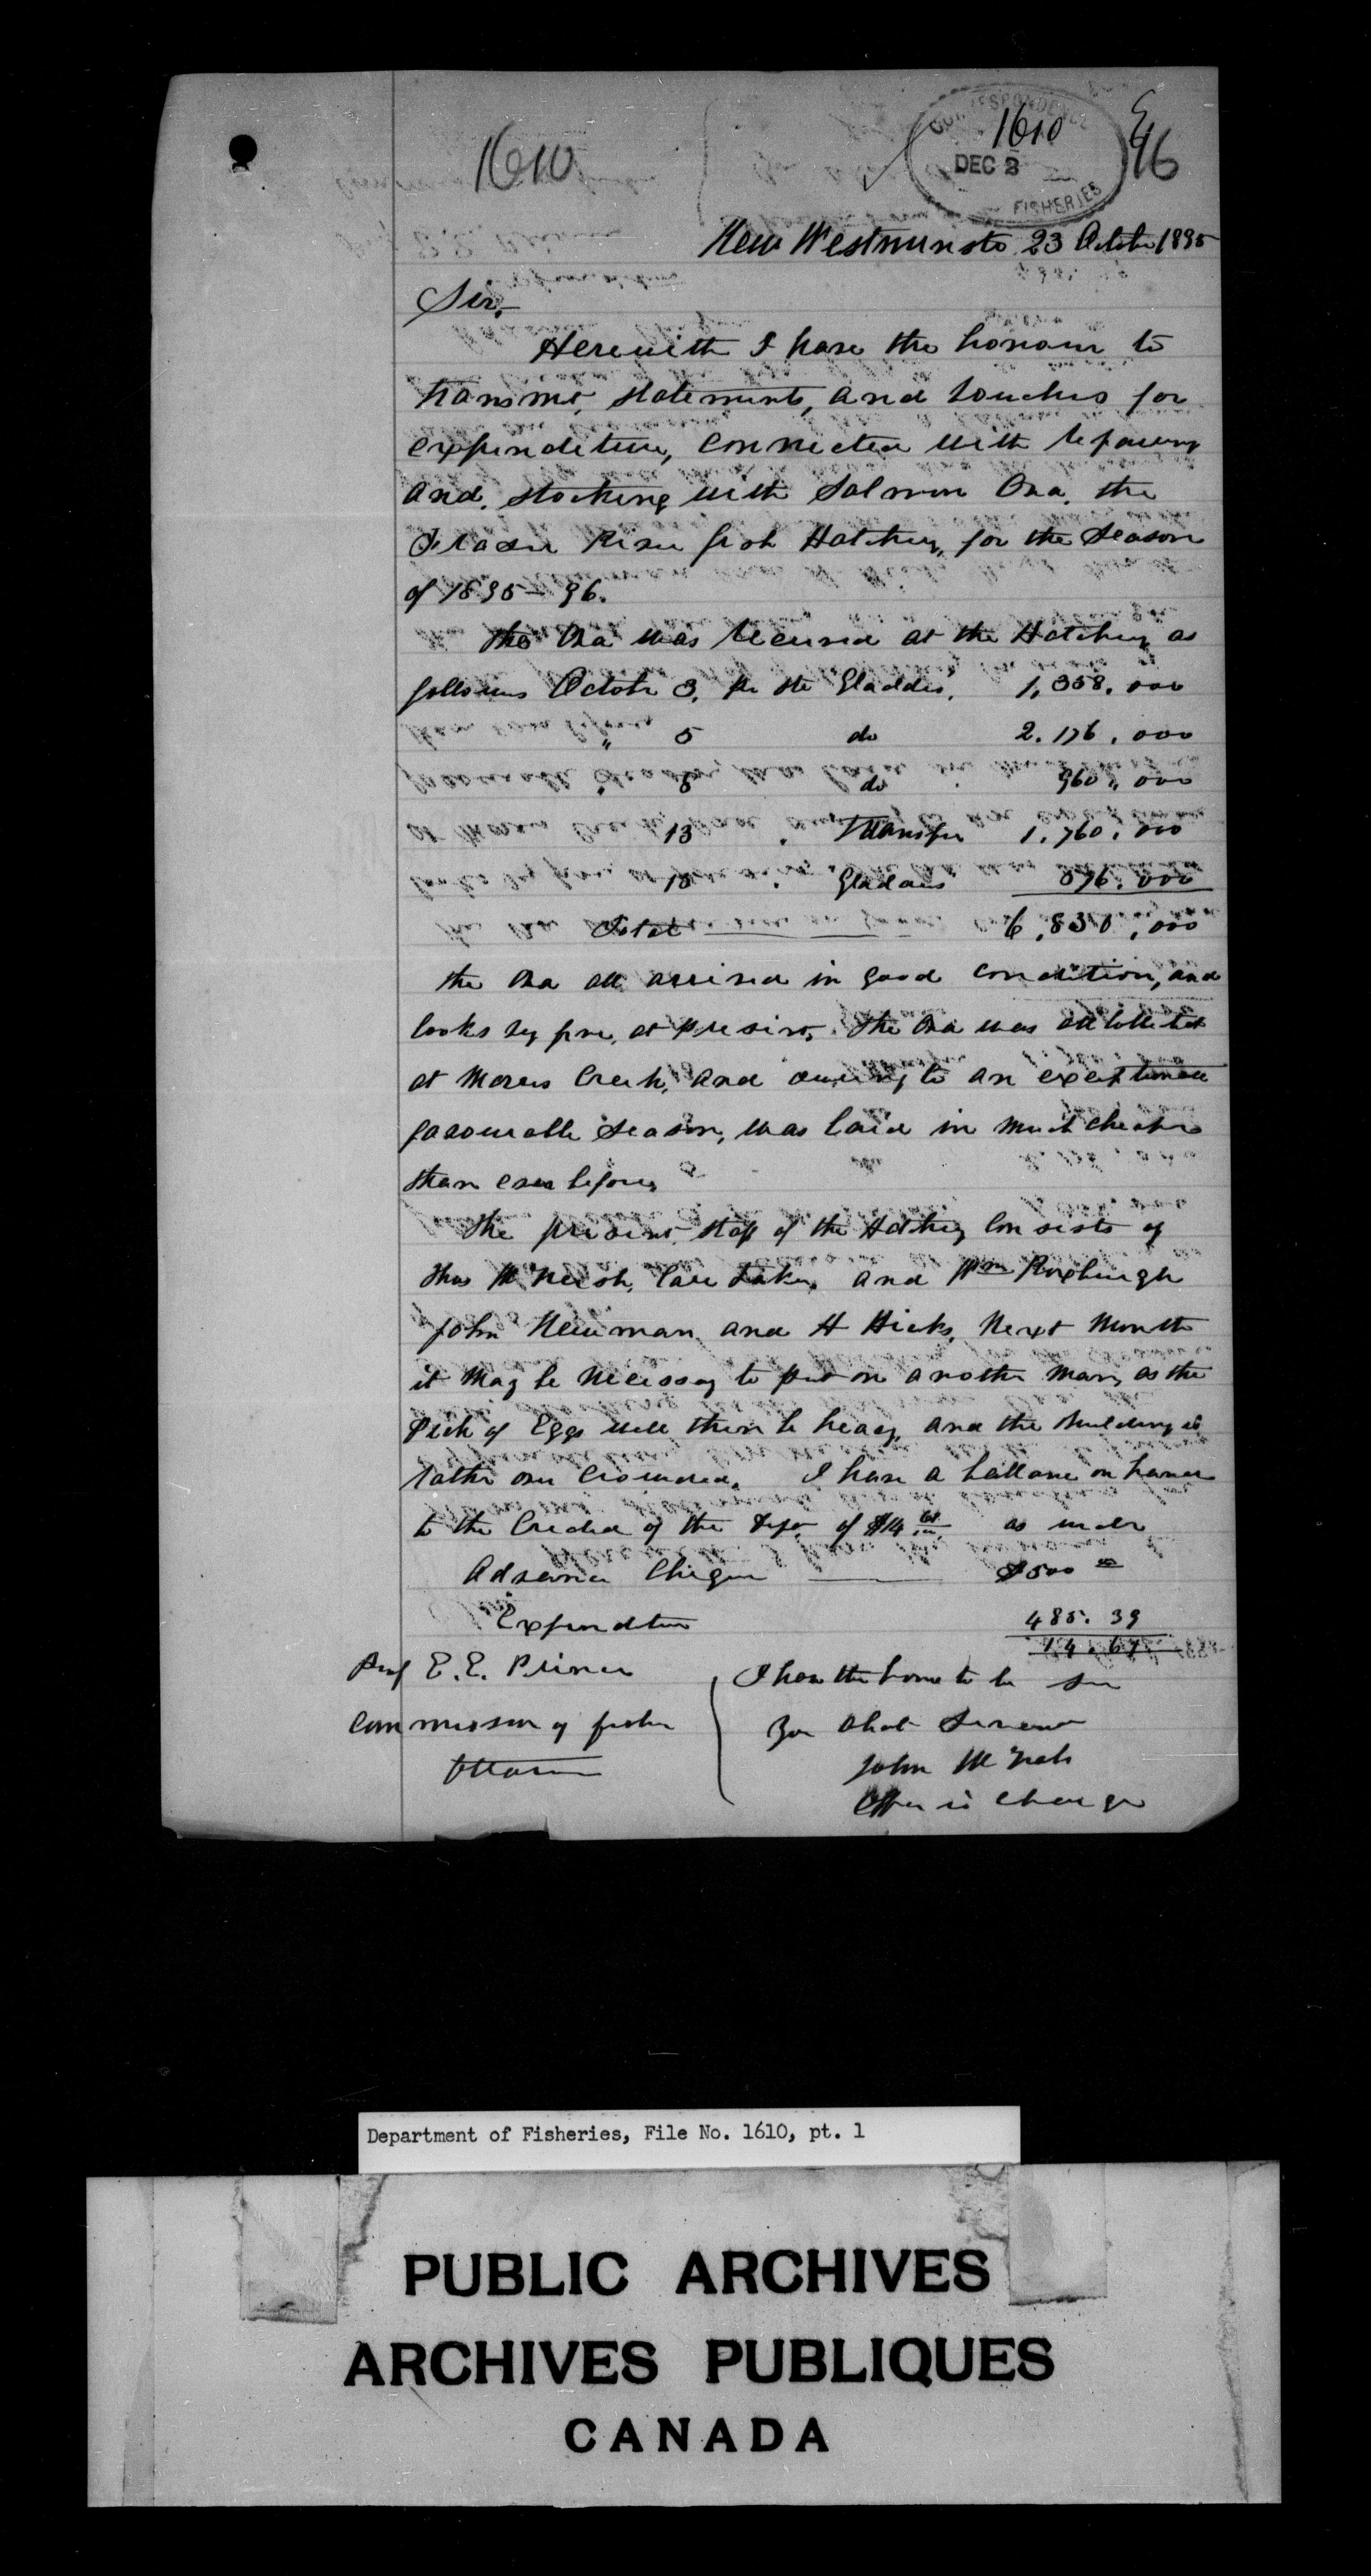 1610
CORRESPONDENCE
1610
DEC 3
FISHERIES
96
New Westminster 23 October 1895
Sir,
Herewith I have the honour to
transmit, statements, and vouchers for
expenditure, connected with repairing
and, stocking with Salmon Ova, the
Fraser River fish Hatchery, for the Season
of 1895-96.
The Ova was received at the Hatchery as
follows October 3, per Str Gladdis, 1,358,000
" 5 do 2.176.000
" 8 do 960,000
13 " Transfer 1,760,000
18 " Gladdis 576.000
Total 6,830,000
the Ova all arrived in good condition, and
looks very fine, at present, the Ova was all collected
at Morris Creek, and owing to an exceptional
favourable season, was laid in much cheaper
than ever before,
The present staff of the Hatchery consists of
Thos McNeish, Care taker, and Wm Roxburgh
John Newman and H Hicks. Next Month
it may be necessary to put on another man, as the
Pick of Eggs will then be heavy, and the building is
rather over crowded. I have a ballance on hand
to the Credit of the Dept of $14.61 as under
Advance Cheque $500 00
Expenditure 485.39
14.61
Prof E. E. Prince
Commissioner of fisheries
Ottawa
I have the honor to be Sir
Your Obdt Servant
John McNab
Officer in charge
Department of Fisheries, File No. 1610, pt. 1
PUBLIC ARCHIVES
ARCHIVES PUBLIQUES
CANADA